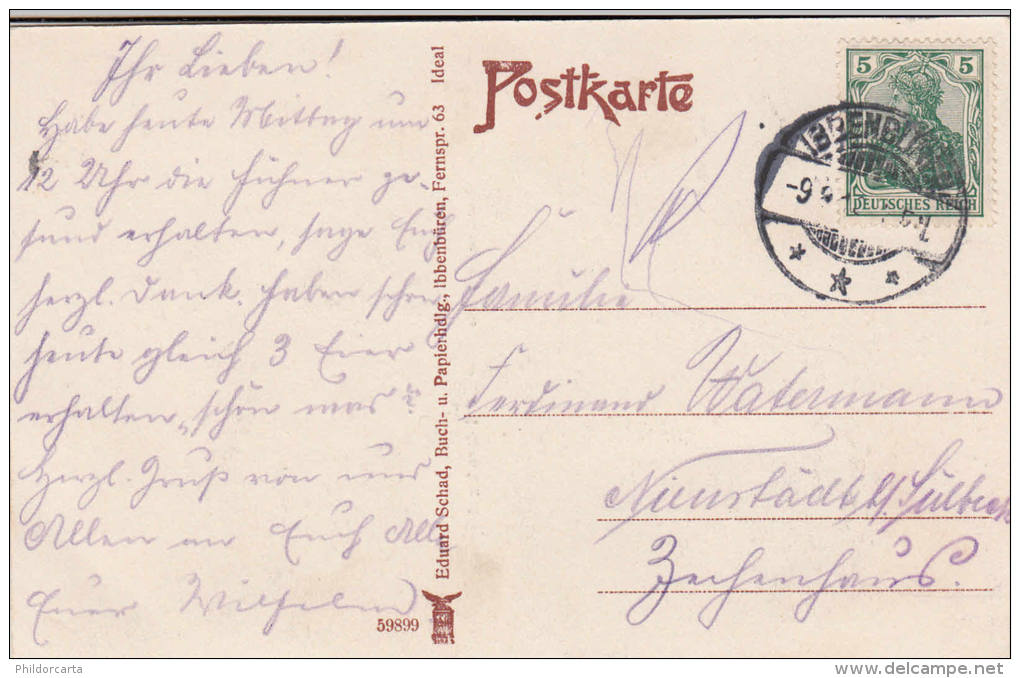 Ihr Lieben!
Habe heute Mittag um
12 Uhr die Hühner ge-
sund erhalten, sage Euch
herzl. Dank. Haben schon
heute gleich 3 Eier
erhalten, schön was?
Herzl. Gruß von uns
Allen an Euch Alle
Euer Wilhelm
Eduard Schad, Buch- u. Papierhdlg., Ibbenbüren, Fernspr. 63 Ideal
59899
Postkarte
5 5
DEUTSCHES REICH
IBBENBÜREN
Familie
Ferdinand Watermann
Nienstädt b/ Sülbeck
Zechenhaus.
Phildorcarta
www.delcampe.net